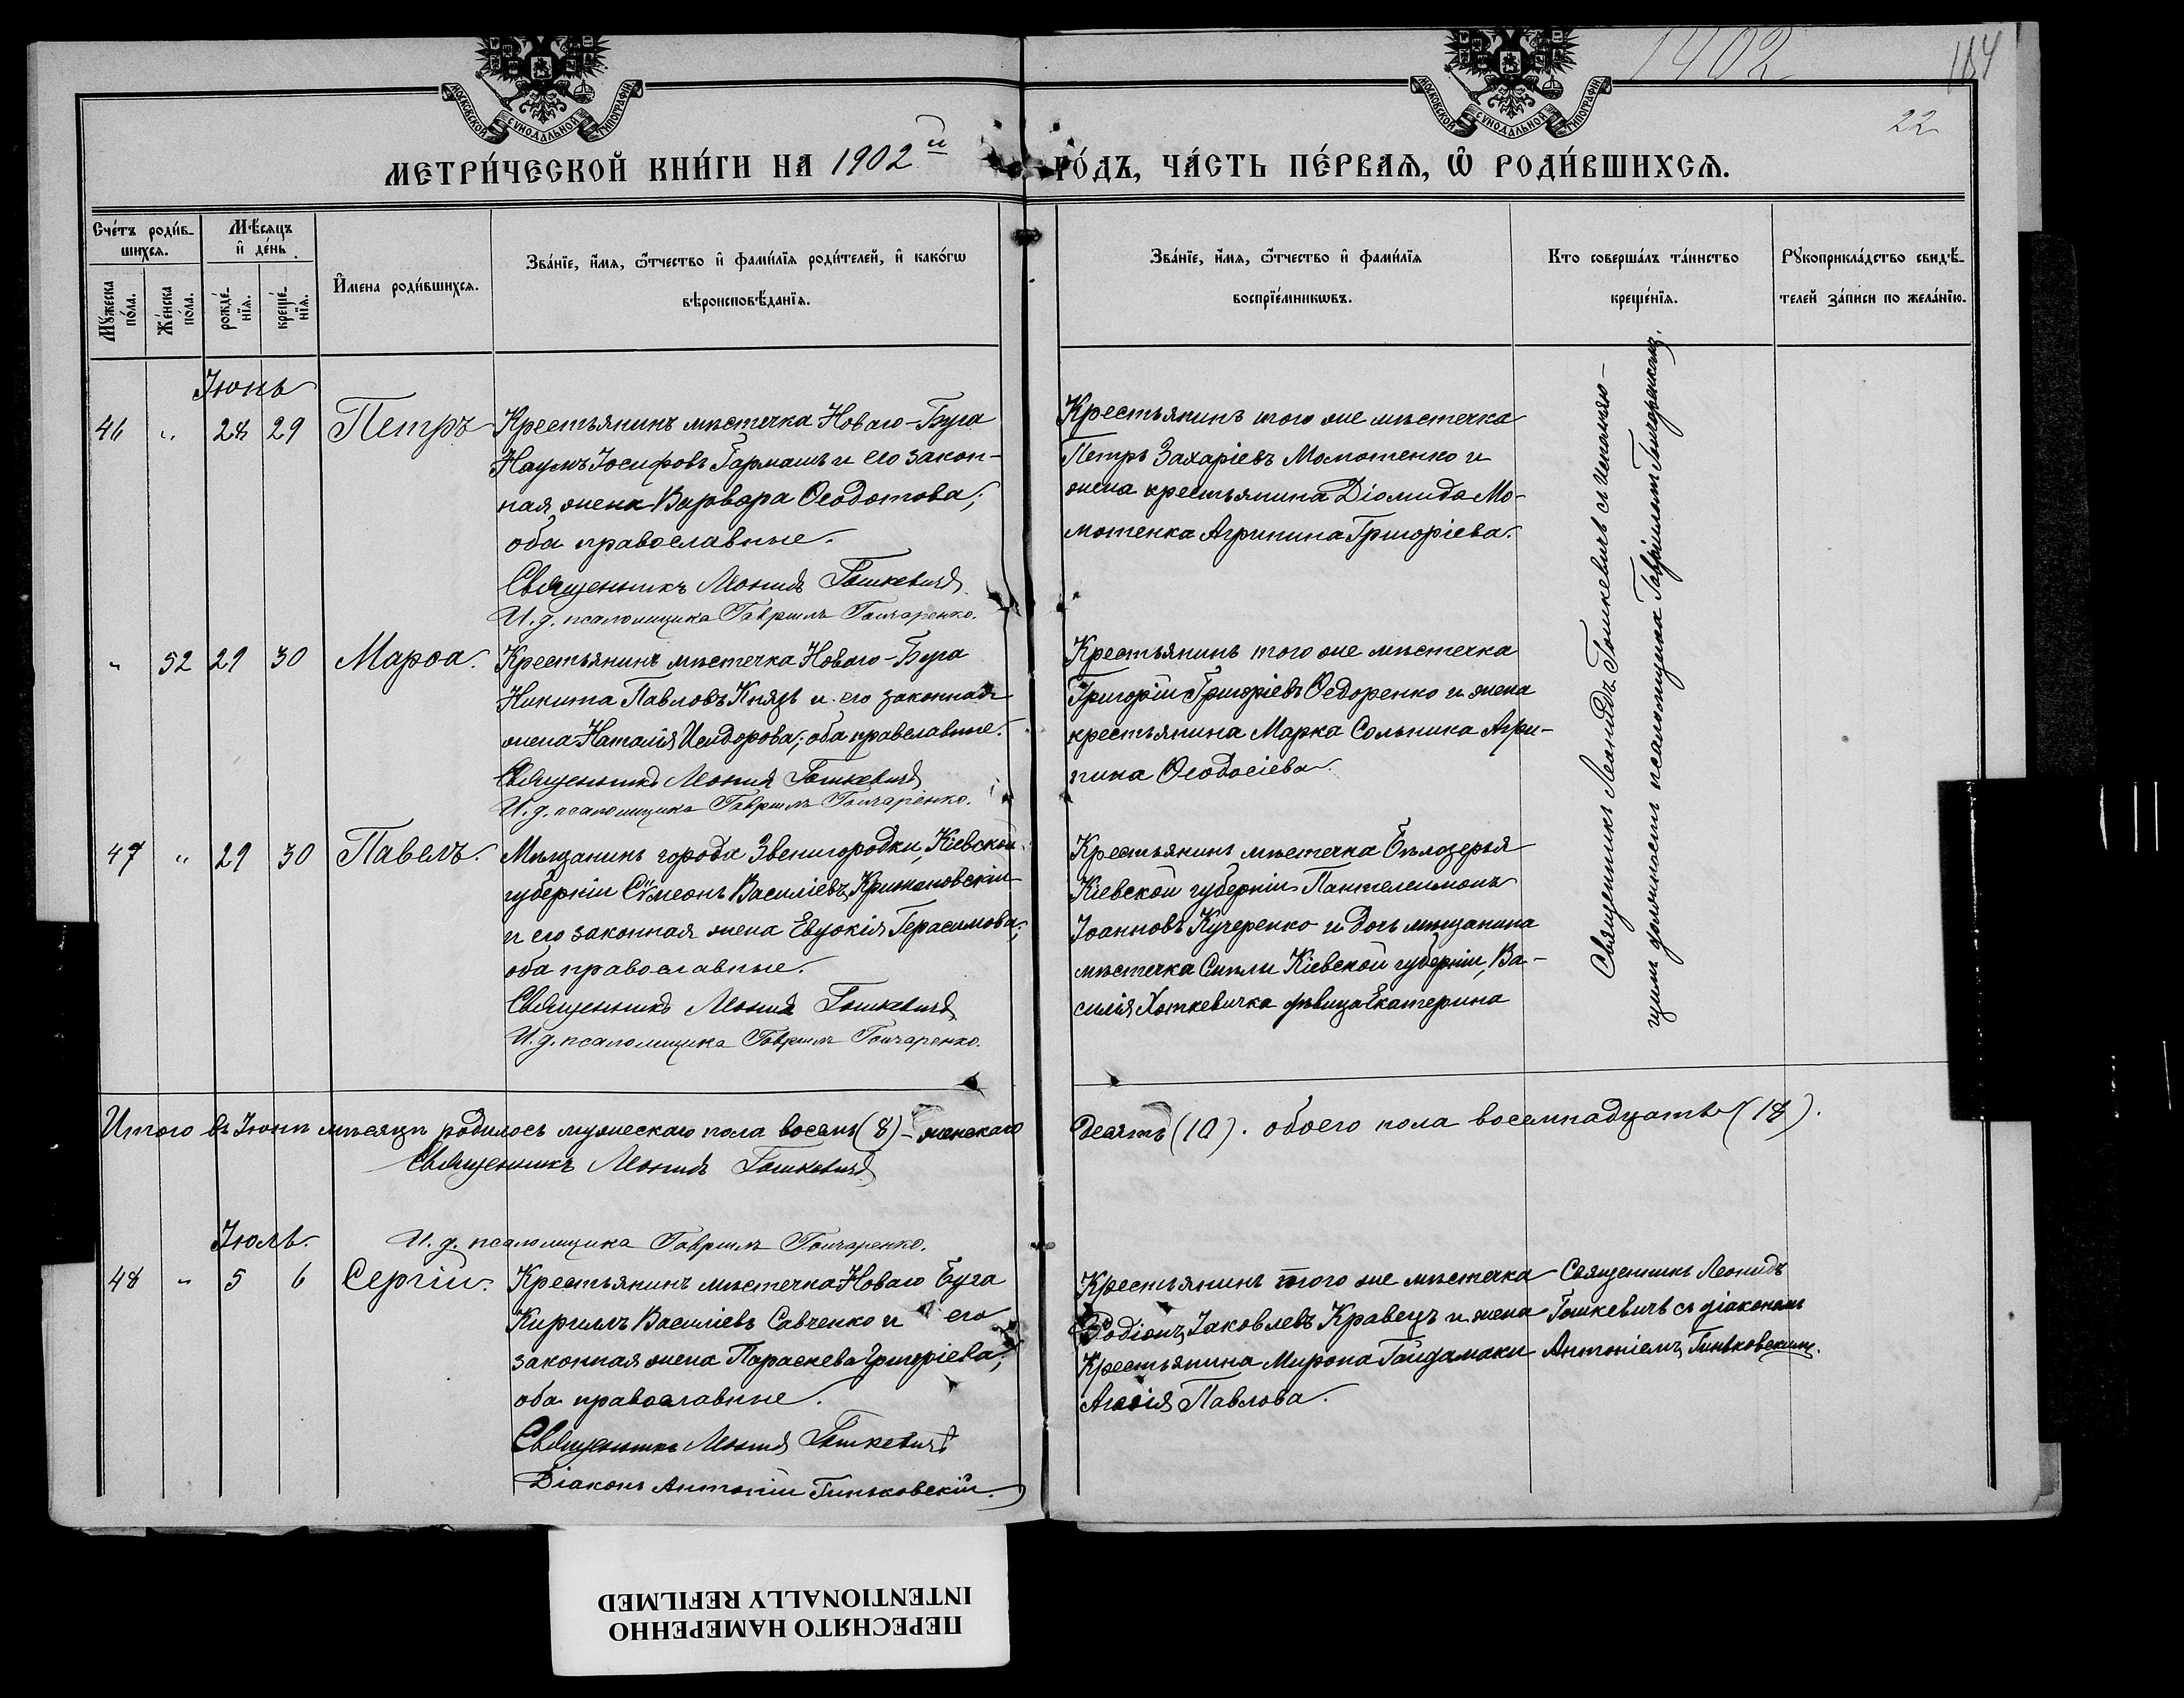 1902
114
22
МОСКОВСКОЙ СѴНОДАЛЬНОЙ ТИПОГРАФІИ
МОСКОВСКОЙ СѴНОДАЛЬНОЙ ТИПОГРАФІИ
МЕТРИ́ЧЕСКОЙ КНИ́ГИ НА 1902й
ГО́ДЪ, ЧА́СТЬ ПЕ́РВАЯ, Ѡ҆ РОДИ́ВШИХСЯ.
Сче́тъ роди́в-
шихся.
Мѣ́сяцъ
и҆ де́нь.
Мꙋ́жеска по́ла.
Же́нска по́ла.
рожде́-
нїя.
креще́-
нїя.
И҆мена роди́вшихся.
Зва́нїе, и҆́мя, ѻ҆́тчество и҆ фами́лїя роди́телей, и҆ како́гѡ
вѣроисповѣ́данїя.
Зва́нїе, и҆́мя, ѻ҆́тчество и҆ фами́лїя
воспрїе́мникѡвъ.
Кто соверша́лъ та́инство
креще́нїя.
Рꙋкоприкла́дство свидѣ́-
телей за́писи по жела́нїю.
Іюнь
46 " 28 29 Петръ
Крестьянинъ мѣстечка Новаго-Буга
Наумъ Іосифовъ Гармашъ и его закон-
ная жена Варвара Ѳеодотова;
оба православные.
Священникъ Леонидъ Гошкевичъ
И. д. псаломщика Гавріилъ Гончаренко.
Крестьянинъ того же мѣстечка
Петръ Захаріевъ Момотенко и
жена крестьянина Діомида Мо-
мотенка Агрипина Григоріева.
" 52 29 30 Марѳа.
Крестьянинъ мѣстечка Новаго-Буга
Никита Павловъ Князь и его законная
жена Наталія Исидорова; оба православные.
Священникъ Леонидъ Гошкевичъ
И. д. псаломщика Гавріилъ Гончаренко.
Крестьянинъ того же мѣстечка
Григорій Григоріевъ Ѳедоренко и жена
крестьянина Марка Сольника Агри-
пина Ѳеодосіева.
47 " 29 30 Павелъ.
Мѣщанинъ города Звенигородки, Кіевской
губерніи Симеонъ Василіевъ Крижановскій
и его законная жена Евдокія Герасимова;
оба православные.
Священникъ Леонидъ Гошкевичъ
И. д. псаломщика Гавріилъ Гончаренко.
Крестьянинъ мѣстечка Бѣлозерья
Кіевской губерніи Пантелеимонъ
Іоанновъ Кучеренко и дочь мѣщанина
мѣстечка Смѣлы Кіевской губерніи, Ва-
силія Хоткевичка дѣвица Екатерина
Священникъ Леонидъ Гошкевичъ съ исполняю-
щимъ должность псаломщика Гавріиломъ Гончаренкомъ.
Итого въ Іюнѣ мѣсяцѣ родилось мужескаго пола восемь (8) - женскаго
десять (10). обоего пола восемнадцать (18).
Священникъ Леонидъ Гошкевичъ
И. д. псаломщика Гавріилъ Гончаренко.
Іюль.
48 " 5 6 Сергій.
Крестьянинъ мѣстечка Новаго Буга
Кириллъ Василіевъ Савченко и его
законная жена Параскева Григоріева;
оба православные.
Священникъ Леонидъ Гошкевичъ
Діаконъ Антоній Гиньковскій.
Крестьянинъ того же мѣстечка
Родіонъ Іаковлевъ Кравецъ и жена
Крестьянина Мирона Гайдамаки
Агаѳія Павлова.
Священникъ Леонидъ
Гошкевичъ съ діакономъ
Антоніемъ Гиньковскимъ.
ПЕРЕСНЯТО НАМЕРЕННО
INTENTIONALLY REFILMED